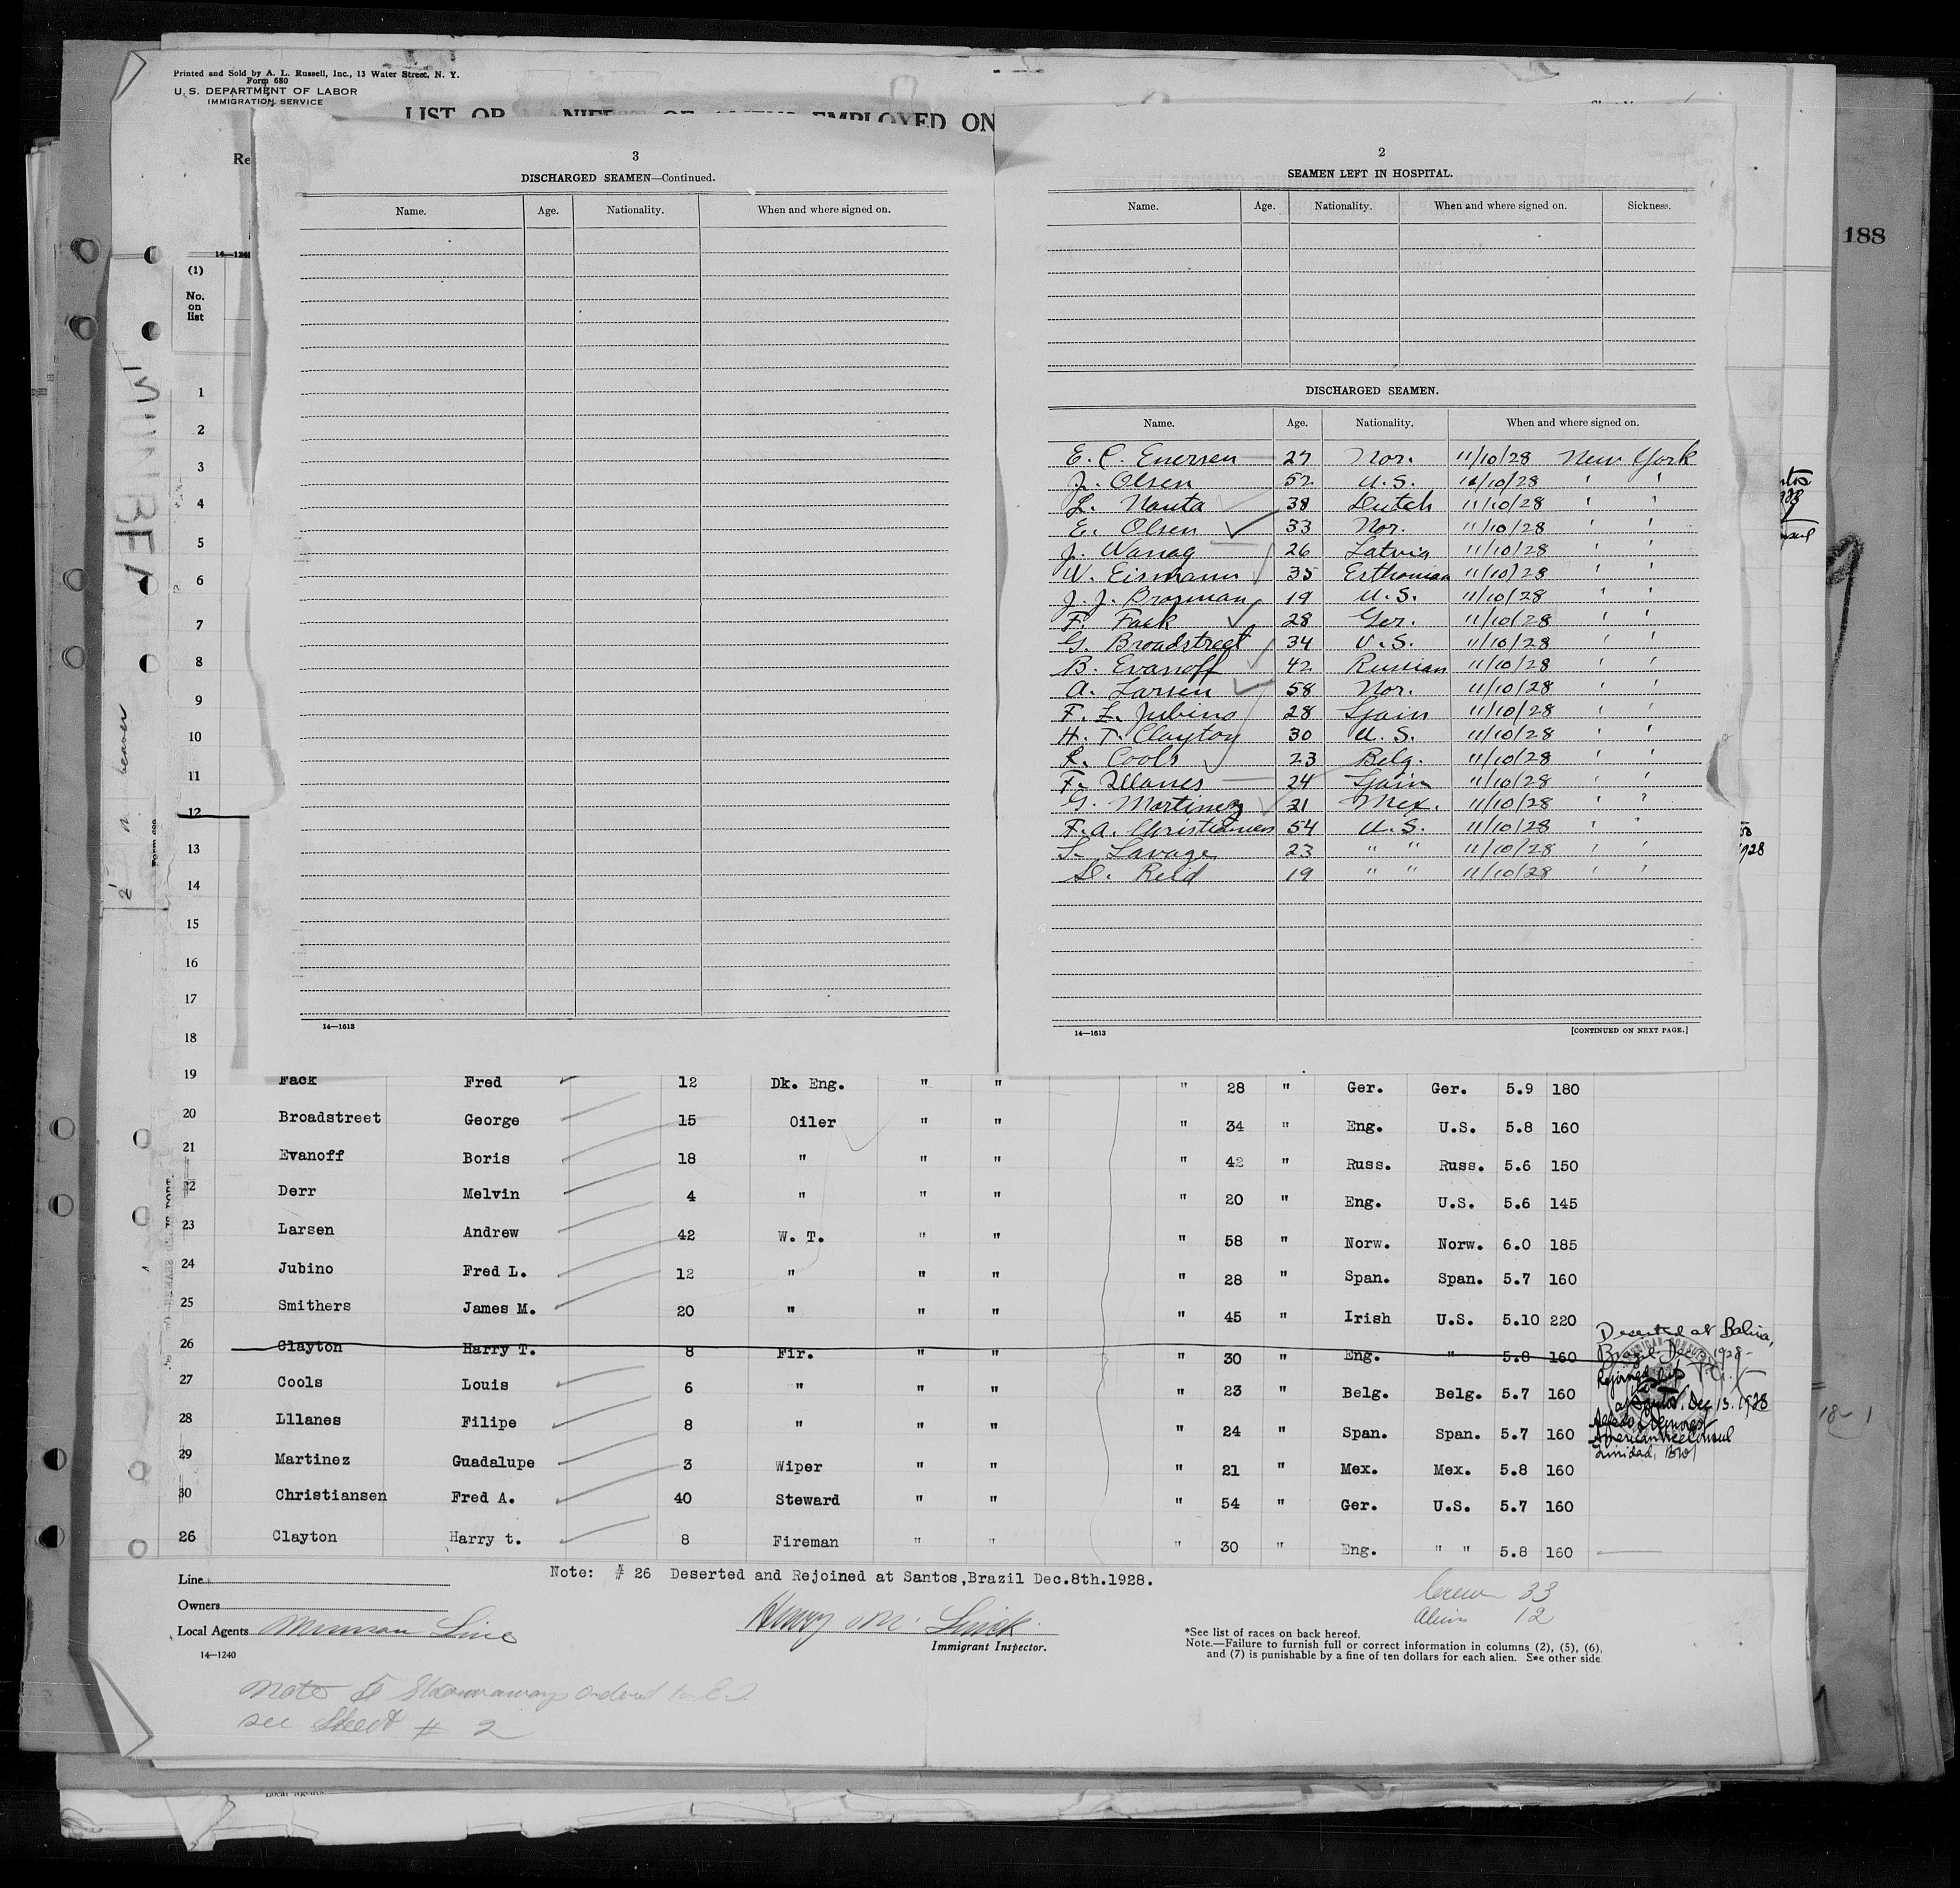 Printed and Sold by A. L. Russell, Inc., 13 Water Street, N. Y.
Form 680
U. S. DEPARTMENT OF LABOR
IMMIGRATION SERVICE
LIST OR MANIFEST OF ALIENS EMPLOYED ON
Re
188
14—1240
(1)
No. on list
1
2
3
4
5
6
7
8
9
10
11
12
13
14
15
16
17
18
3
DISCHARGED SEAMEN—Continued.
Name. Age. Nationality. When and where signed on.
14—1613
2
SEAMEN LEFT IN HOSPITAL.
Name. Age. Nationality. When and where signed on. Sickness.
DISCHARGED SEAMEN.
Name. Age. Nationality. When and where signed on.
E. C. Enersen 27 Nor. 11/10/28 New York
J. Olsen 52 U.S. 11/10/28 " "
L. Nauta 38 Dutch 11/10/28 " "
E. Olsen 33 Nor. 11/10/28 " "
J. Wanag 26 Latvia 11/10/28 " "
W. Eismann 35 Esthonian 11/10/28 " "
J. J. Brozman 19 U.S. 11/10/28 " "
F. Fack 28 Ger. 11/10/28 " "
G. Broadstreet 34 U.S. 11/10/28 " "
B. Evanoff 42 Russian 11/10/28 " "
A. Larsen 58 Nor. 11/10/28 " "
F. L. Jubino 28 Spain 11/10/28 " "
H. T. Clayton 30 U.S. 11/10/28 " "
L. Cools 23 Belg. 11/10/28 " "
F. Lllanes 24 Spain 11/10/28 " "
G. Martinez 21 Mex. 11/10/28 " "
F. A. Christiansen 54 U.S. 11/10/28 " "
S. Savage 23 " " 11/10/28 " "
D. Reid 19 " " 11/10/28 " "
14—1613 [CONTINUED ON NEXT PAGE.]
19 Fack Fred 12 Dk. Eng. " " " 28 " Ger. Ger. 5.9 180
20 Broadstreet George 15 Oiler " " " 34 " Eng. U.S. 5.8 160
21 Evanoff Boris 18 " " " " 42 " Russ. Russ. 5.6 150
22 Derr Melvin 4 " " " " 20 " Eng. U.S. 5.6 145
23 Larsen Andrew 42 W. T. " " " 58 " Norw. Norw. 6.0 185
24 Jubino Fred L. 12 " " " " 28 " Span. Span. 5.7 160
25 Smithers James M. 20 " " " " 45 " Irish U.S. 5.10 220
26 Clayton Harry T. 8 Fir. " " " 30 " Eng. " 5.8 160
Deserted at Bahia,
Brazil Dec 1928
Rejoined ship
at Santos, Dec 13. 1928
American Vice Consul
Trinidad, BWI
27 Cools Louis 6 " " " " 23 " Belg. Belg. 5.7 160
28 Lllanes Filipe 8 " " " " 24 " Span. Span. 5.7 160
29 Martinez Guadalupe 3 Wiper " " " 21 " Mex. Mex. 5.8 160
30 Christiansen Fred A. 40 Steward " " " 54 " Ger. U.S. 5.7 160
26 Clayton Harry t. 8 Fireman " " " 30 " Eng. " " 5.8 160
Note: # 26 Deserted and Rejoined at Santos,Brazil Dec.8th.1928.
Line
Owners
Local Agents Munson Line
14—1240
Immigrant Inspector.
Crew 33
Aliens 12
*See list of races on back hereof.
Note.—Failure to furnish full or correct information in columns (2), (5), (6), and (7) is punishable by a fine of ten dollars for each alien. See other side
Note Stowaways Ordered to E.I.
see Sheet # 2
18-1
Local Agents